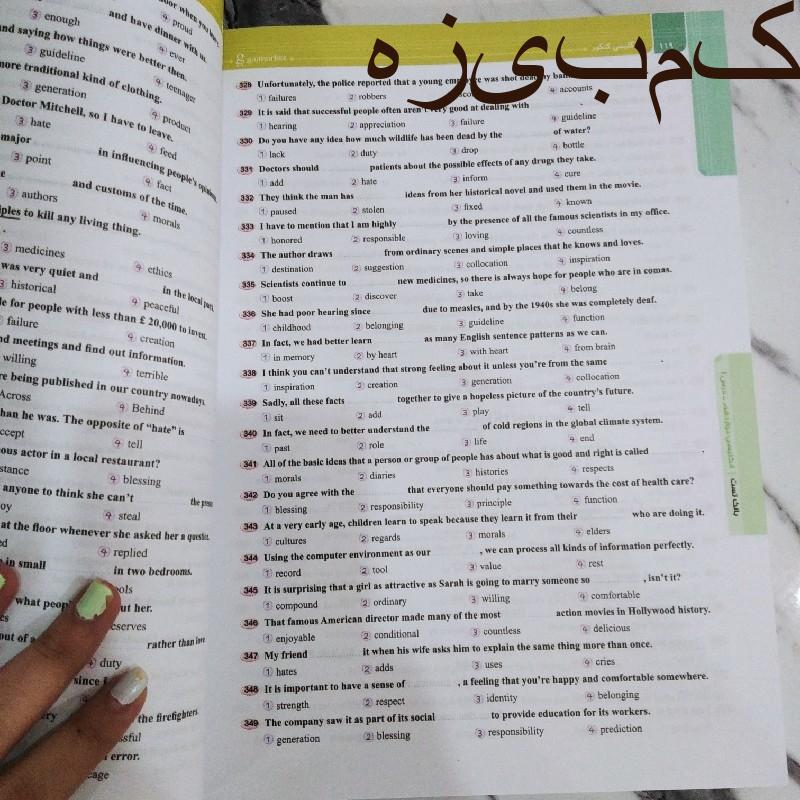 کمبیزه
119
328 Unfortunately, the police reported that a young was shot by
1 failures 2 robbers 4 accounts
329 It is said that successful people often aren't very good at dealing with .
1 hearing 2 appreciation 3 failure 4 guideline
330 Do you have any idea how much wildlife has been dead by the of water?
1 lack 2 duty 3 drop 4 bottle
331 Doctors should patients about the possible effects of any drugs they take.
1 add 2 hate 3 inform 4 cure
332 They think the man has ideas from her historical novel and used them in the movie.
1 paused 2 stolen 3 fixed 4 known
333 I have to mention that I am highly by the presence of all the famous scientists in my office.
1 honored 2 responsible 3 loving 4 countless
334 The author draws from ordinary scenes and simple places that he knows and loves.
1 destination 2 suggestion 3 collocation 4 inspiration
335 Scientists continue to new medicines, so there is always hope for people who are in comas.
1 boost 2 discover 3 take 4 belong
336 She had poor hearing since due to measles, and by the 1940s she was completely deaf.
1 childhood 2 belonging 3 guideline 4 function
337 In fact, we had better learn as many English sentence patterns as we can.
1 in memory 2 by heart 3 with heart 4 from brain
338 I think you can't understand that strong feeling about it unless you're from the same .
1 inspiration 2 creation 3 generation 4 collocation
339 Sadly, all these facts together to give a hopeless picture of the country's future.
1 sit 2 add 3 play 4 tell
340 In fact, we need to better understand the of cold regions in the global climate system.
1 past 2 role 3 life 4 end
341 All of the basic ideas that a person or group of people has about what is good and right is called .
1 morals 2 diaries 3 histories 4 respects
342 Do you agree with the that everyone should pay something towards the cost of health care?
1 blessing 2 responsibility 3 principle 4 function
343 At a very early age, children learn to speak because they learn it from their who are doing it.
1 cultures 2 regards 3 morals 4 elders
344 Using the computer environment as our , we can process all kinds of information perfectly.
1 record 2 tool 3 value 4 rest
345 It is surprising that a girl as attractive as Sarah is going to marry someone so , isn't it?
1 compound 2 ordinary 3 willing 4 comfortable
346 That famous American director made many of the most action movies in Hollywood history.
1 enjoyable 2 conditional 3 countless 4 delicious
347 My friend it when his wife asks him to explain the same thing more than once.
1 hates 2 adds 3 uses 4 cries
348 It is important to have a sense of , a feeling that you're happy and comfortable somewhere.
1 strength 2 respect 3 identity 4 belonging
349 The company saw it as part of its social to provide education for its workers.
1 generation 2 blessing 3 responsibility 4 prediction
بانک تست
3 enough 4 proud
and have dinner with us.
and saying how things were better then.
3 guideline 4 ever
more traditional kind of clothing.
3 generation 4 teenager
Doctor Mitchell, so I have to leave.
4 product
3 hate 4 feed
major in influencing people's
3 point 4 fact
and customs of the time.
3 authors 4 morals
to kill any living thing.
3 medicines 4 ethics
was very quiet and in the local
3 historical 4 peaceful
for people with less than £ 20,000 to invest.
failure 4 creation
meetings and find out information.
willing 4 terrible
being published in our country nowadays.
Across 4 Behind
than he was. The opposite of "hate" is
4 tell
actor in a local restaurant?
4 blessing
anyone to think she can't the
4 steal
at the floor whenever she asked her a
4 replied
in small in two bedrooms.
what her.
rather than
4 duty
since
the firefighters.
error.